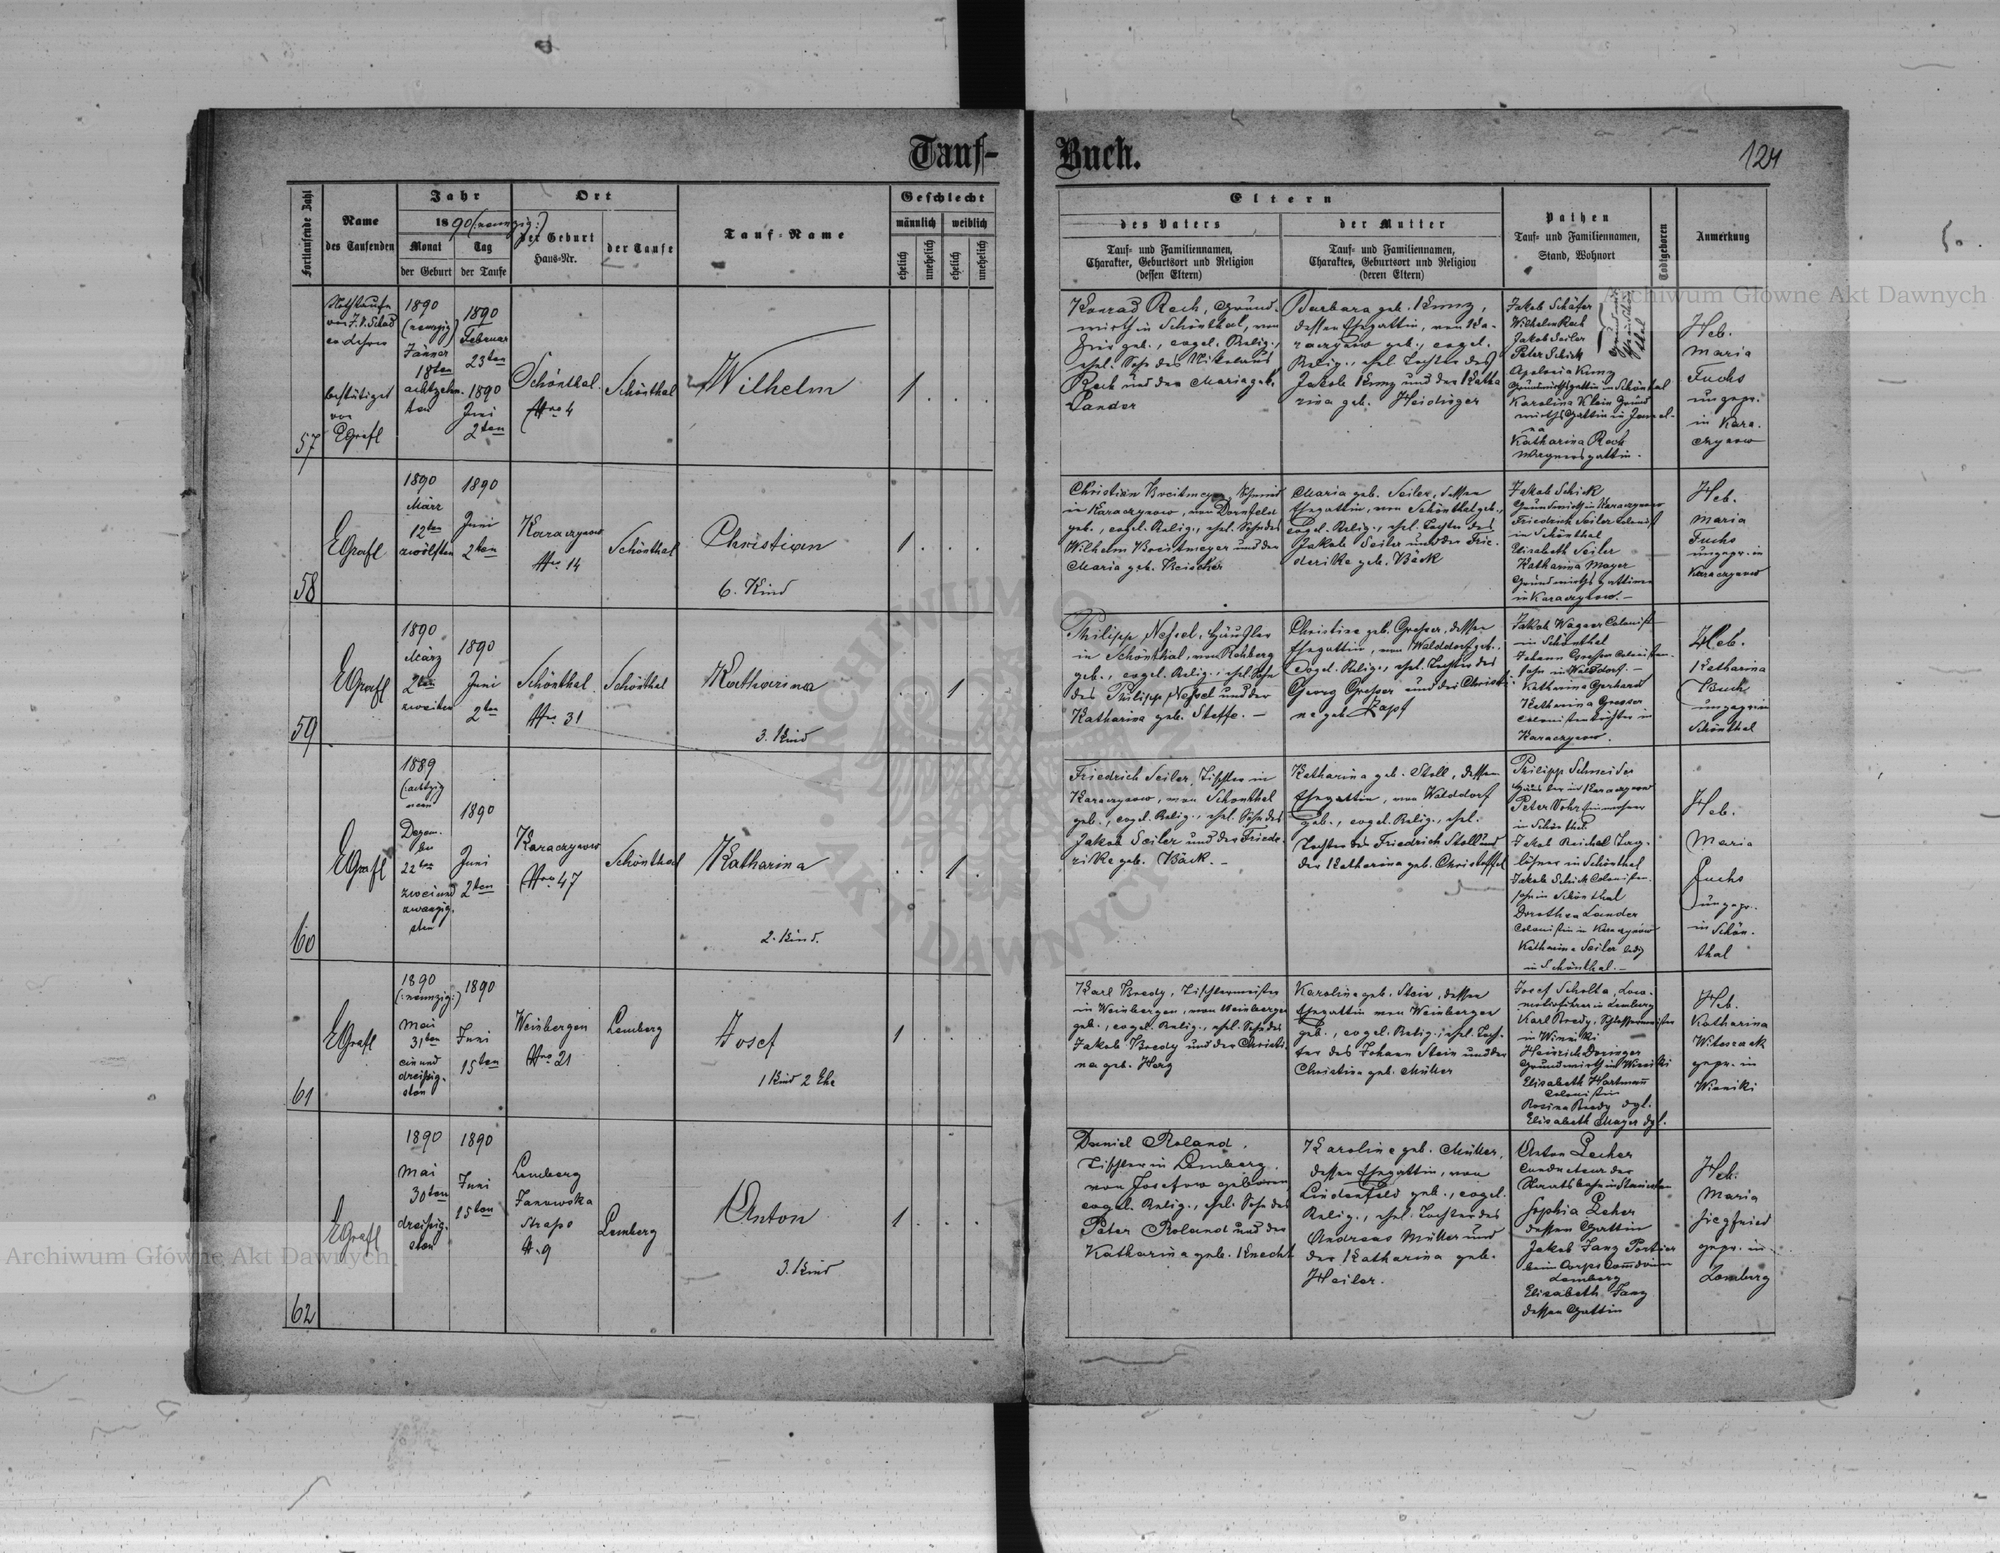 Tauf-
Buch.
124
Fortlaufende Zahl
Name
des Taufenden
Jahr
1890 (neunzig:)
Monat
der Geburt
Tag
der Taufe
Ort
der Geburt
Haus-Nr.
der Taufe
Tauf-Name
Geschlecht
männlich
weiblich
ehelich
unehelich
ehelich
unehelich
Eltern
des Vaters
Tauf- und Familiennamen,
Charakter, Geburtsort und Religion
(dessen Eltern)
der Mutter
Tauf- und Familiennamen,
Charakter, Geburtsort und Religion
(deren Eltern)
Pathen
Tauf- und Familiennamen,
Stand, Wohnort
Todtgeboren
Anmerkung
57
Nothtaufe
von
bestätiget
von
EGrafl
1890
(neunzig)
Jänner
18ten
achtzehn-
ten
1890
Februar
23ten
1890
Juni
2ten
Schönthal
Nro 4
Schönthal
Wilhelm
1
Konrad Roch, Grund-
wirth in Schönthal, von
hier geb., evgel. Relig.,
ehel. Sohn des Nikolaus
Roch und der Maria geb.
Lander
Barbara geb. Kunz,
dessen Ehegattin, von Ka-
raczynow geb., evgel.
Relig., ehel. Tochter des
Jakob Kunz und der Katha
rina geb. Heidinger
Jakob Schäfer
Wilhelm Roch
Jakob Seiler
Peter Schick
Apolonia Kunz
Grundwirthsgattin in Schönthal
Karolina Klein Grund
wirths Gattin in
Katharina Roch
Wagnersgattin.
Heb.
Maria
Fuchs
ungepr.
in Kara-
czynow
58
EGrafl
1890
März
12ten
zwölften
1890
Juni
2ten
Karaczynow
Nro 14
Schönthal
Christian
6. Kind
1
Christian Breitmeyer, Schmid
in Karaczynow, von Dornfeld
geb., evgel. Relig., ehel. Sohn des
Wilhelm Breitmeyer und der
Maria geb. Reischer
Maria geb. Seiler, dessen
Ehegattin, von Schönthal geb.,
evgel. Relig., ehel. Tochter des
Jakob Seiler und der Frie-
derike geb. Bäck
Jakob Schick
Grundwirth in Karaczynow
Friedrich Seiler Colonist
in Schönthal
Elisabeth Seiler
Katharina Mayer
Grundwirths gattinen
in Karaczynow.-
Heb.
Maria
Fuchs
ungepr. in
Karaczynow
59
EGrafl
1890
März
2ten
zweiten
1890
Juni
2ten
Schönthal
Nro. 31
Schönthal
Katharina
3. Kind
1
Philipp Nessel, Häusler
in Schönthal, von Rehberg
geb., evgel. Relig., ehel. Sohn
des Philipp Nessel und der
Katharina geb. Steffe. -
Christine geb. Gresser, dessen
Ehegattin, von Walddorf geb.,
evgel. Relig., ehel. Tochter des
Georg Gresser und der Christi-
ne geb. Zapf
Jakob Wagner Colonist
in Schönthal
Johann Gresser Colonisten-
sohn in Walddorf. -
Katharina Gerhard
Katharina Gresser
Colonistentöchter in
Karaczynow.
Heb.
Katharina
Buch
ungepr in
Schönthal
60
EGrafl
1889
(:achtzig
neun
Dezem-
ber
22ten
zweiund
zwanzig-
sten
1890
Juni
2ten
Karaczynow
Nro 47
Schönthal
Katharina
2. Kind.
1
Friedrich Seiler, Tischler in
Karaczynow, von Schönthal
geb., evgel. Relig., ehel. Sohn des
Jakob Seiler und der Friede-
rike geb. Bäck. -
Katharina geb. Stoll, dessen
Ehegattin, von Walddorf
geb., evgel. Relig., ehel.
Tochter des Friedrich Stoll und
der Katharina geb. Christoffel
Philipp Schneider
Häusler in Karaczynow
Peter Inwohner
in Schönthal
Jakob Reichel Tag-
löhner in Schönthal
Jakob Schick Colonisten-
sohn in Schönthal
Dorothea Lander
Colonistin in Karaczynow
Katharina Seiler ledig
in Schönthal. -
Heb.
Maria
Fuchs
ungepr.
in Schön-
thal
61
EGrafl
1890
(:neunzig:)
Mai
31ten
ein und
dreißig-
sten
1890
Juni
15ten
Weinbergen
Nro 21
Lemberg
Josef
1 Kind 2 Ehe
1
Karl Bredy, Tischlermeister
in Weinbergen, von Weinbergen
geb., evgel. Relig., ehel. Sohn des
Jakob Bredy und der Christi-
na geb. Herz
Karoline geb. Stein, dessen
Ehegattin von Weinbergen
geb., evgel. Relig., ehel. Toch-
ter des Johann Stein und der
Christine geb. Müller
Josef Scholta, Loco-
motivführer in Lemberg
Karl Bredy, Schlossermeister
in Winniki
Heinrich Doringer
Grundwirth in Winniki
Elisabeth Hartmann
Colonistin
Rosina Bredy dgl.
Elisabeth Mayer dgl.
Heb.
Katharina
Witoszak
gepr. in
Winniki
62
EGrafl
1890
Mai
30ten
dreißig-
sten
1890
Juni
15ten
Lemberg
Janowska
Straße
N. 9
Lemberg
Anton
3. Kind
1
Daniel Roland,
Tischler in Lemberg,
von Josefow geboren
evgel. Relig., ehel. Sohn des
Peter Roland und der
Katharina geb. Knecht
Karoline geb. Müller,
dessen Ehegattin, von
Lindenfeld geb., evgel.
Relig., ehel. Tochter des
Andreas Müller und
der Katharina geb.
Heiler.
Anton Lecher
Conducteur der
Staatsbahn in
Sophia Lecher
dessen Gattin
Jakob Janz Portier
beim Corps
Lemberg
Elisabeth Janz
dessen Gattin
Heb.
Maria
Siegfried
gepr. in
Lemberg
Archiwum Główne Akt Dawnych
Archiwum Główne Akt Dawnych